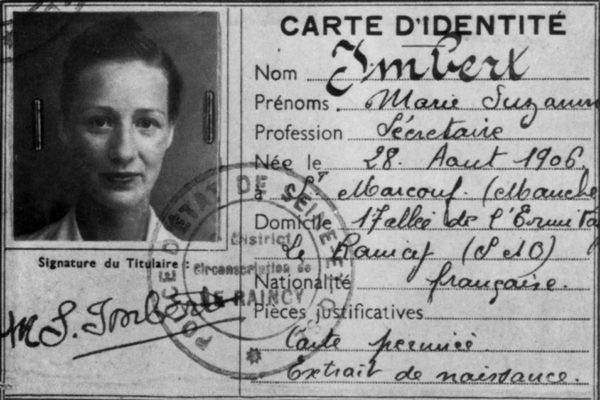 CARTE D'IDENTITÉ
Nom Imbert
Prénoms Marie Suzanne
Profession Sécretaire
Née le 28. Aout 1906
à St Marcouf. (Manche
Domicile 17 allée de l'Ermitag
Le Raincy (S&O)
Nationalité française.
Pièces justificatives
Carte
Extrait de naissance.
Signature du Titulaire :
M S. Imbert
ETAT DE SEINE
District
Circonscription de
LE RAINCY